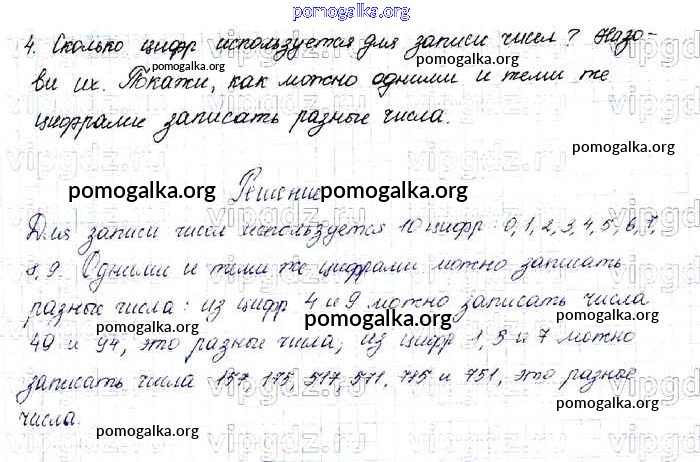 pomogalka.org
4. Сколько цифр используется для записи чисел? Назо-
ви их. Покажи, как можно одними и теми же
цифрами записать разные числа.
Решение
Для записи чисел используется 10 цифр: 0, 1, 2, 3, 4, 5, 6, 7,
8, 9. Одними и теми же цифрами можно записать
разные числа: из цифр 4 и 9 можно записать числа
49 и 94, это разные числа; из цифр 1, 5 и 7 можно
записать числа 157, 175, 517, 571, 715 и 751, это разные
числа.
pomogalka.org
pomogalka.org
pomogalka.org
pomogalka.org
pomogalka.org
pomogalka.org
pomogalka.org
pomogalka.org
pomogalka.org
pomogalka.org
vipgdz.ru